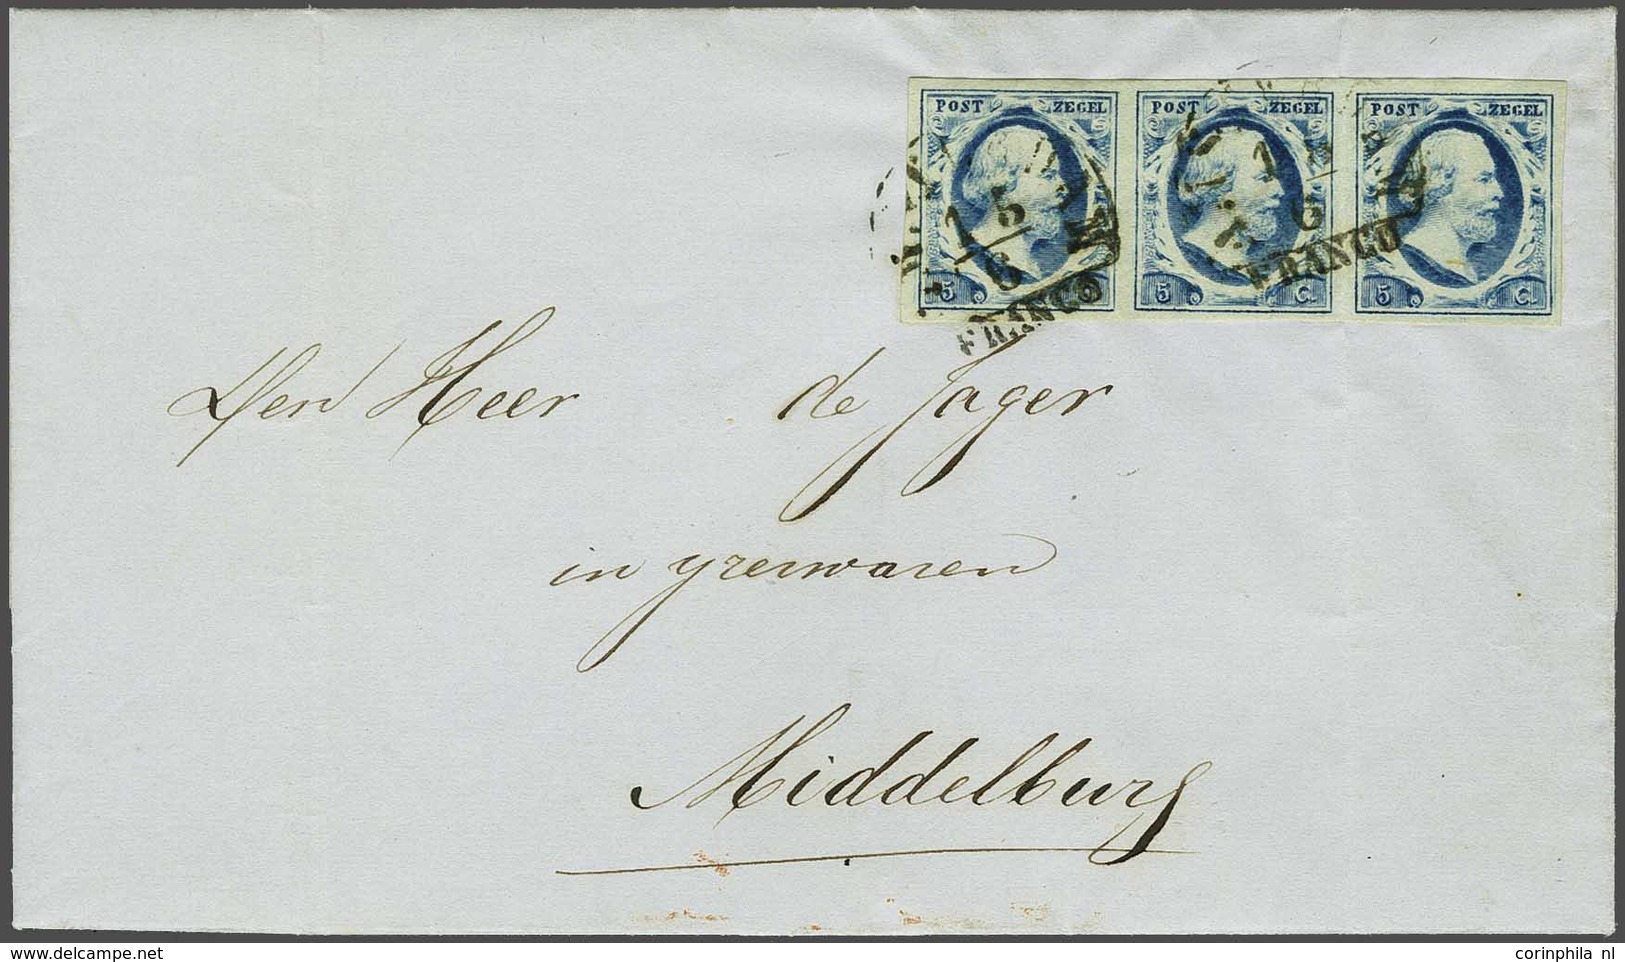 POST ZEGEL POST ZEGEL POST ZEGEL
15
6
FRANCO
1
6
FRANCO
5 5 C. 5 C.
Den Heer de Jager
in yzerwaren
Middelburg
www.delcampe.net
corinphila nl